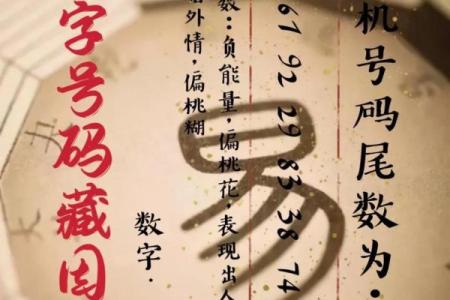 机号码尾数为·
61 92 29 83 38 74
数：负能量，偏桃花，表现出人
外情，偏桃糊
易
数字·
字号码藏